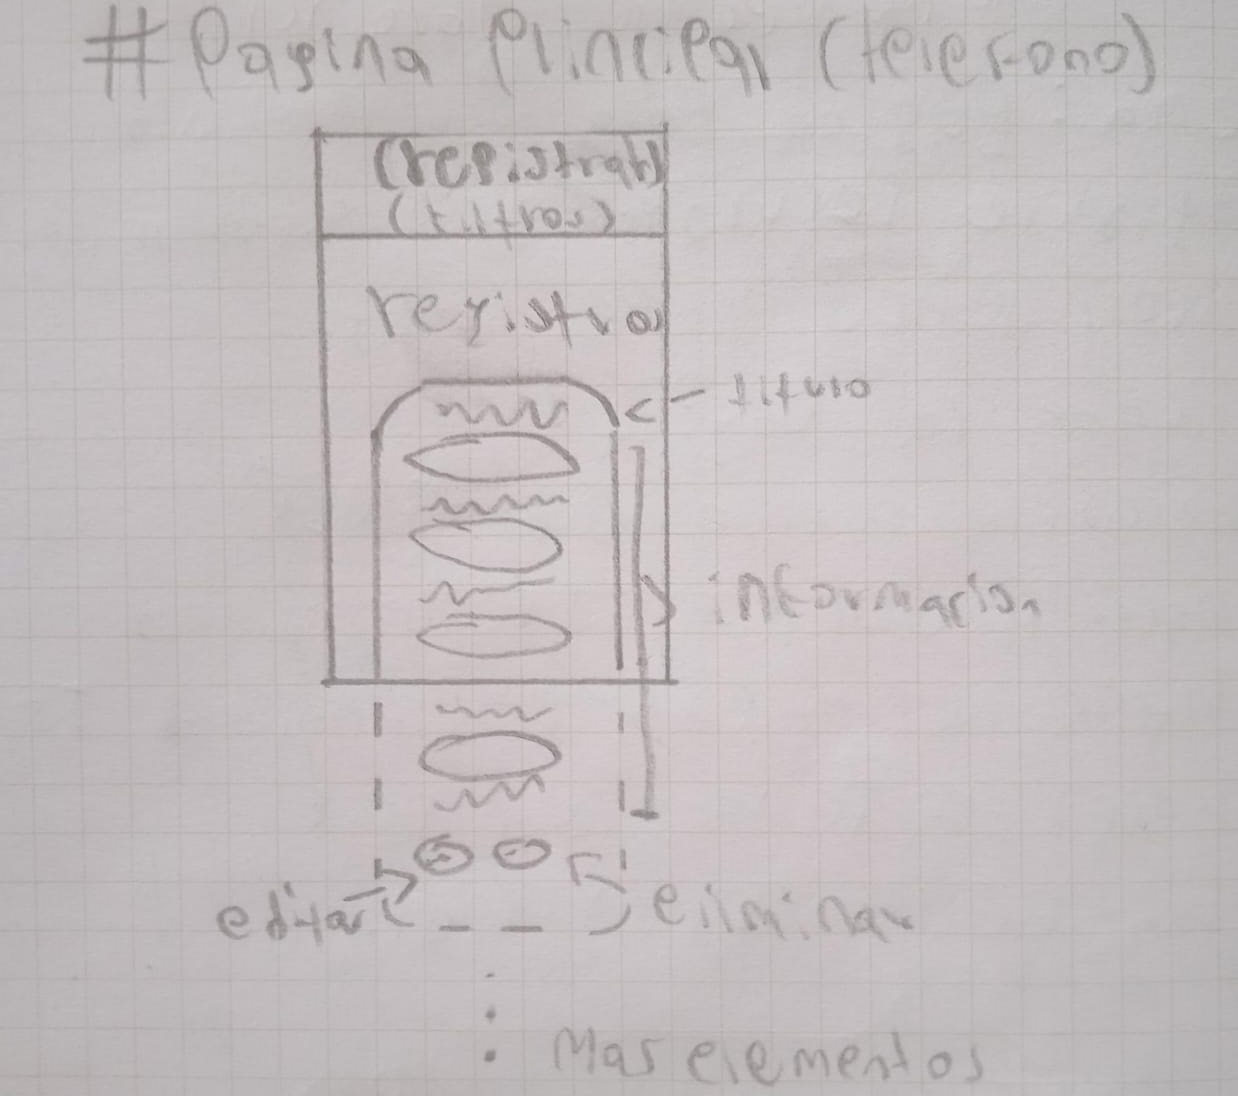 # Pagina Principal (telefono)
(registrar)
(filtros)
registros
titulo
informacion
editar
eliminar
Mas elementos